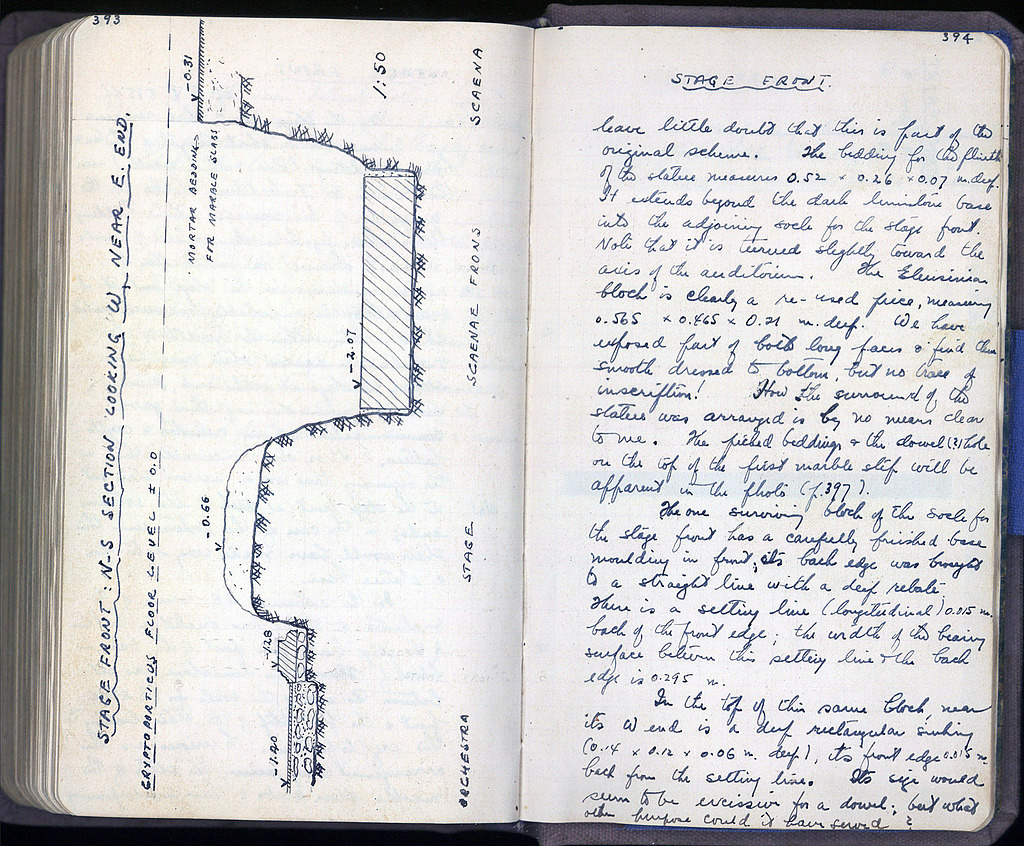 393
STAGE FRONT: N-S SECTION LOOKING W, NEAR E. END.
CRYPTOPORTICUS FLOOR LEVEL ± 0.0
-0.31
MORTAR BEDDING
FOR MARBLE SLABS
-2.07
-0.66
-1.28
-1.40
1:50
SCAENA
SCAENAE FRONS
STAGE
ORCHESTRA
394
STAGE FRONT.
leave little doubt that this is part of the
original scheme. The bedding for the plinth
of the statue measures 0.52 x 0.26 x 0.07 m. deep.
It extends beyond the dark limestone base
into the adjoining socle for the stage front.
Note that it is turned slightly toward the
axis of the auditorium. The Eleusinian
block is clearly a re-used piece, measuring
0.565 x 0.465 x 0.21 m. deep. We have
exposed part of both long faces & find them
smooth dressed to bottom, but no trace of
inscription! How the surround of the
statue was arranged is by no means clear
to me. The picked bedding & the dowel (?) hole
on the top of the first marble slip will be
apparent in the photo (p. 397).
The one surviving block of the socle for
the stage front has a carefully finished base
moulding in front; its back edge was brought
to a straight line with a deep rebate.
There is a setting line (longitudinal) 0.015 m.
back of the front edge; the width of the bearing
surface between this setting line & the back
edge is 0.295 m.
In the top of this same block, near
its W end is a deep rectangular sinking
(0.14 x 0.12 x 0.06 m. deep), its front edge 0.015 m.
back from the setting line. Its size would
seem to be excessive for a dowel; but what
other purpose could it have served?